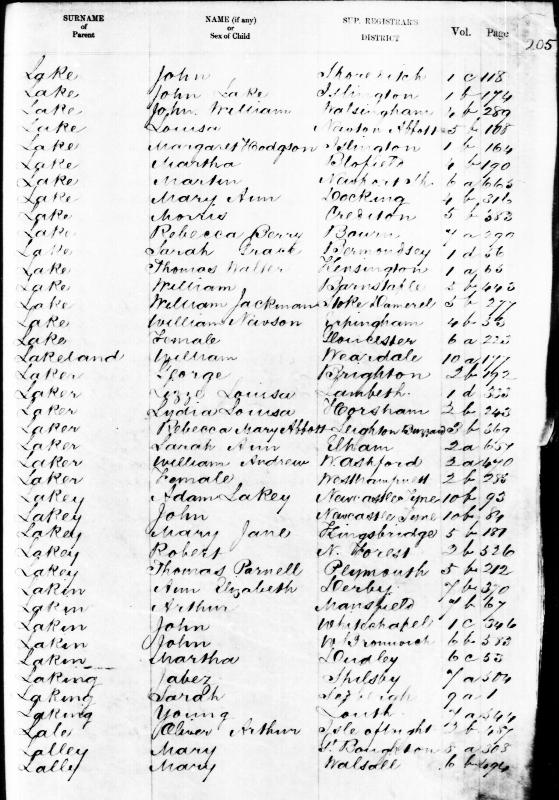 SURNAME of Parent NAME (if any) or Sex of Child SUP. REGISTRAR'S DISTRICT Vol. Page
205
Lake John Shoreditch 1 c 118
Lake John Lake Islington 1 b 174
Lake John William Walsingham 4 b 289
Lake Louisa Newton Abbott 5 b 108
Lake Margaret Hodgson Islington 1 b 164
Lake Martha Blofield 4 b 190
Lake Martin Newport 6 a
Lake Mary Ann Docking 4 b 316
Lake Morris Crediton 5 b 383
Lake Rebecca Berry Bourn 7 a 290
Lake Sarah Bermondsey 1 d 36
Lake Thomas Walter Kensington 1 a 63
Lake William Barnstable 5 b 443
Lake William Jackman Stoke Damerel 5 b 277
Lake William Nawson Erpingham 4 b 53
Lake Female Gloucester 6 a 223
Lakeland William Weardale 10 a 177
Laker George Brighton 2 b 192
Laker Lizze Louisa Lambeth 1 d 333
Laker Lydia Louisa Horsham 2 b 243
Laker Rebecca Mary Abbott Leighton Buzzard 3 b 369
Laker Sarah Ann Elham 2 a 657
Laker William Andrew W Ashford 2 a
Laker Female Westhampnett 2 b 285
Lakey Adam Lakey Newcastle Tyne 10 b 93
Lakey John Newcastle Tyne 10 b 84
Lakey Mary Jane Kingsbridge 5 b 181
Lakey Robert N. Forest 2 b 526
Lakey Thomas Parnell Plymouth 5 b 212
Lakin Ann Elizabeth Derby 7 b 370
Lakin Arthur Mansfield 7 b 67
Lakin John Whitechapel 1 c 346
Lakin John W. Bromwich 6 b 583
Lakin Martha Dudley 6 c 53
Laking Jabez Spilsby 7 a 504
Laking Sarah 9 a 1
Laking Young Louth 7 a 544
Lale Oliver Arthur Isle of Wight 2 b 487
Lalley Mary 5 a 308
Lally Mary Walsall 6 b